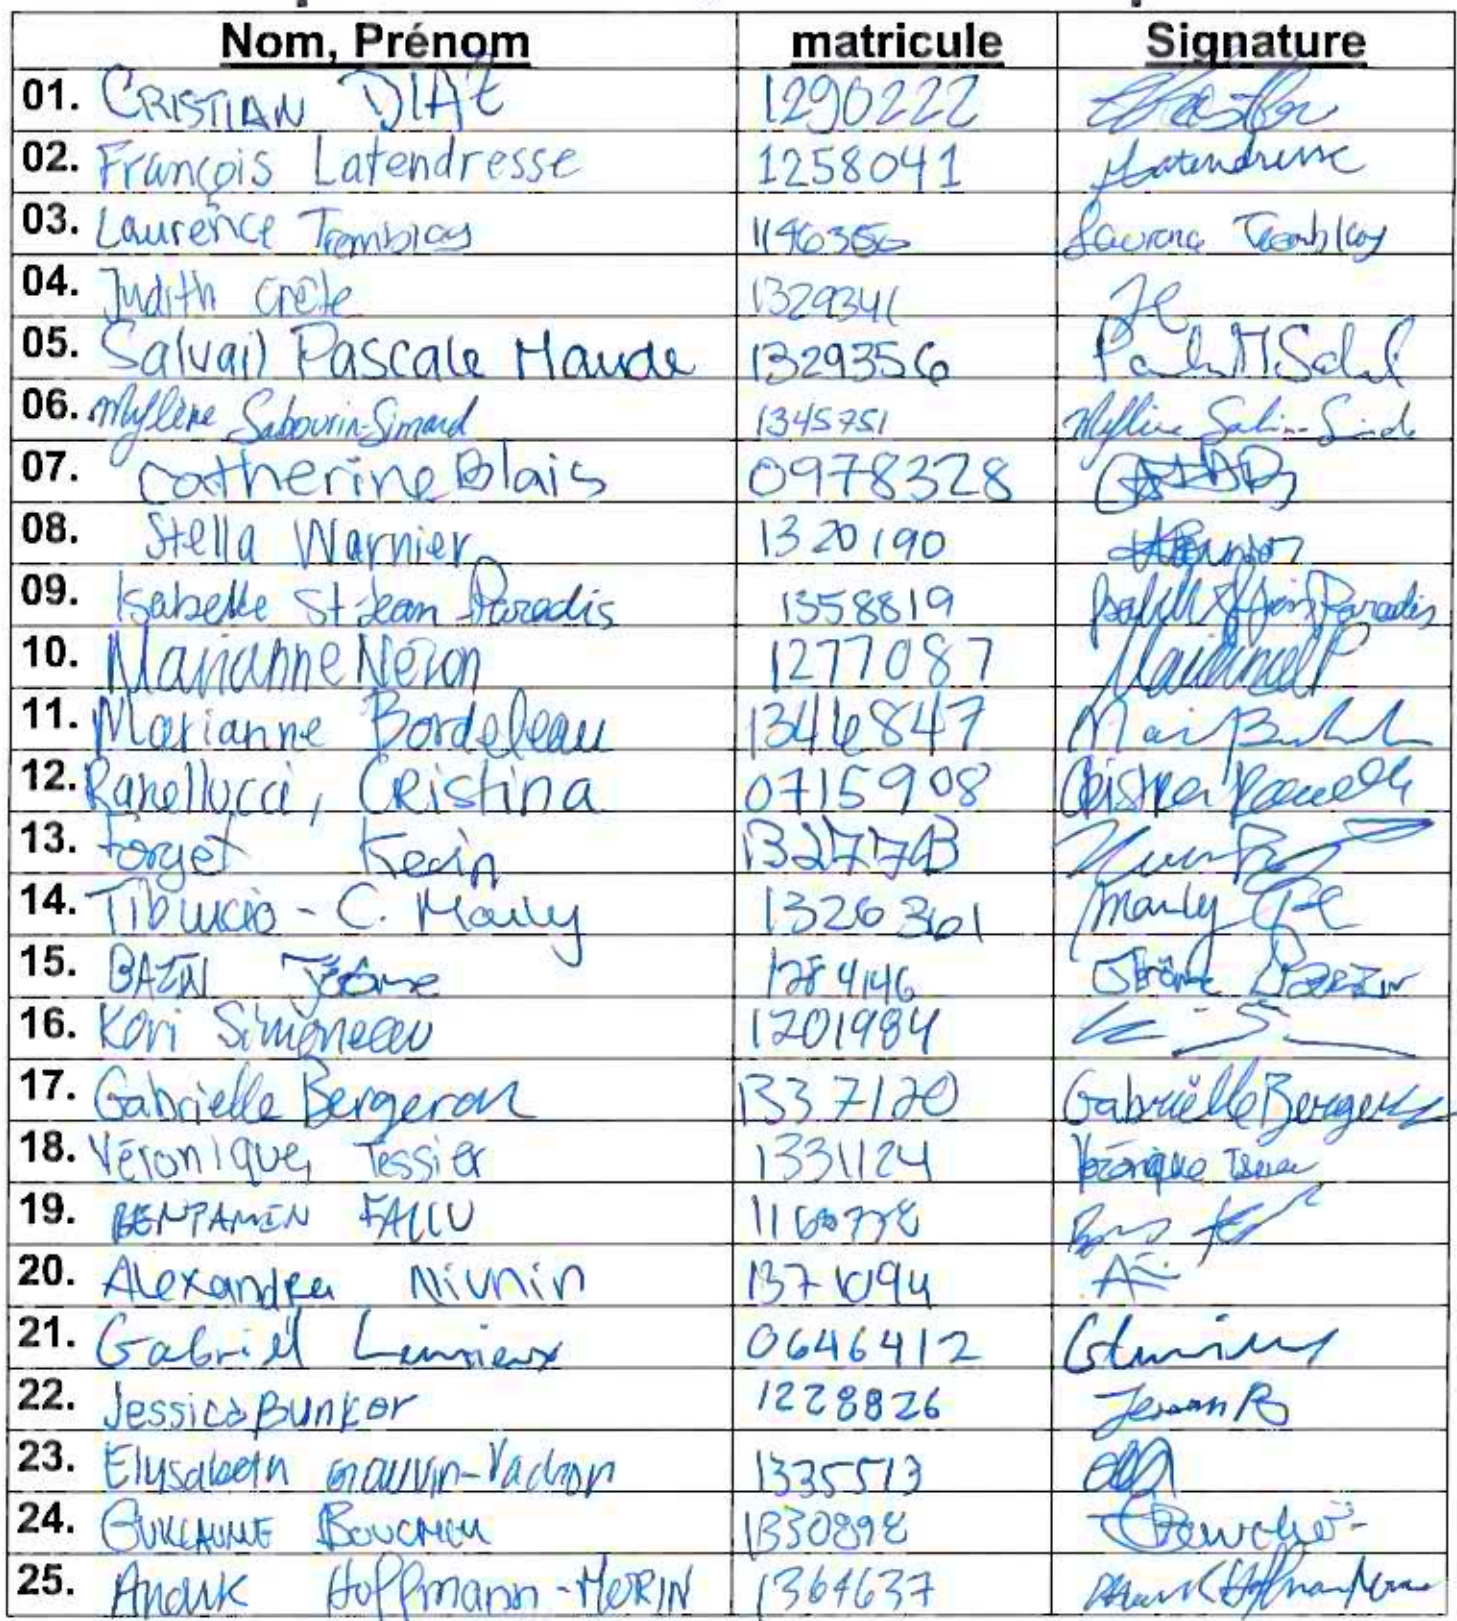 Nom, Prénom matricule Signature
01. CRISTIAN DIAZ 1290222
02. François Latendresse 1258041 Latendresse
03. Laurence Tremblay 1196356 Laurence Tremblay
04. Judith Crête 1329341 JC
05. Salvail Pascale Maude 1329356
06. Mylène Sabourin-Simard 1345751 Mylène
07. Catherine Blais 0978328
08. Stella Warnier 1320190
09. Isabelle St-Jean-Paradis 1358819 Isabelle St-Jean Paradis
10. Marianne Néron 1277087
11. Marianne Bordeleau 1346847
12. Ranellucci, Cristina 0715908 Cristina
13. Forget Kevin 1327743
14. Tibúrcio - C. Marly 1326361 Marly
15. BAZIN Jérôme 1284146 Jérôme Bazin
16. Kori Simoneau 1201984
17. Gabrielle Bergeron 1337120 Gabrielle Bergeron
18. Véronique Tessier 1331124 Véronique Tessier
19. BENJAMIN FALLU
20. Alexandra Niunin 1371094
21. Gabriel Lemieux 0646412
22. Jessica Bunkor 1228826
23. Elysabeth Gauvin-Vachon 1335513
24. GUILLAUME BOUCHER 1330898 Boucher
25. Anouk Hoffmann-MORIN 1364637 Anouk Hoffman